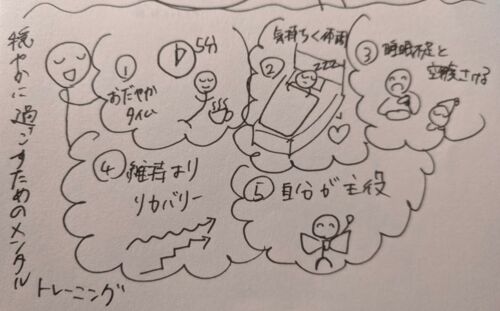 穏やかに過ごすためのメンタル
トレーニング
① 5分
おだやか
タイム
② 気持ちく
zzz
③ 睡眠不足と
空腹さける
④ 維持より
リカバリー
⑤ 自分が主役